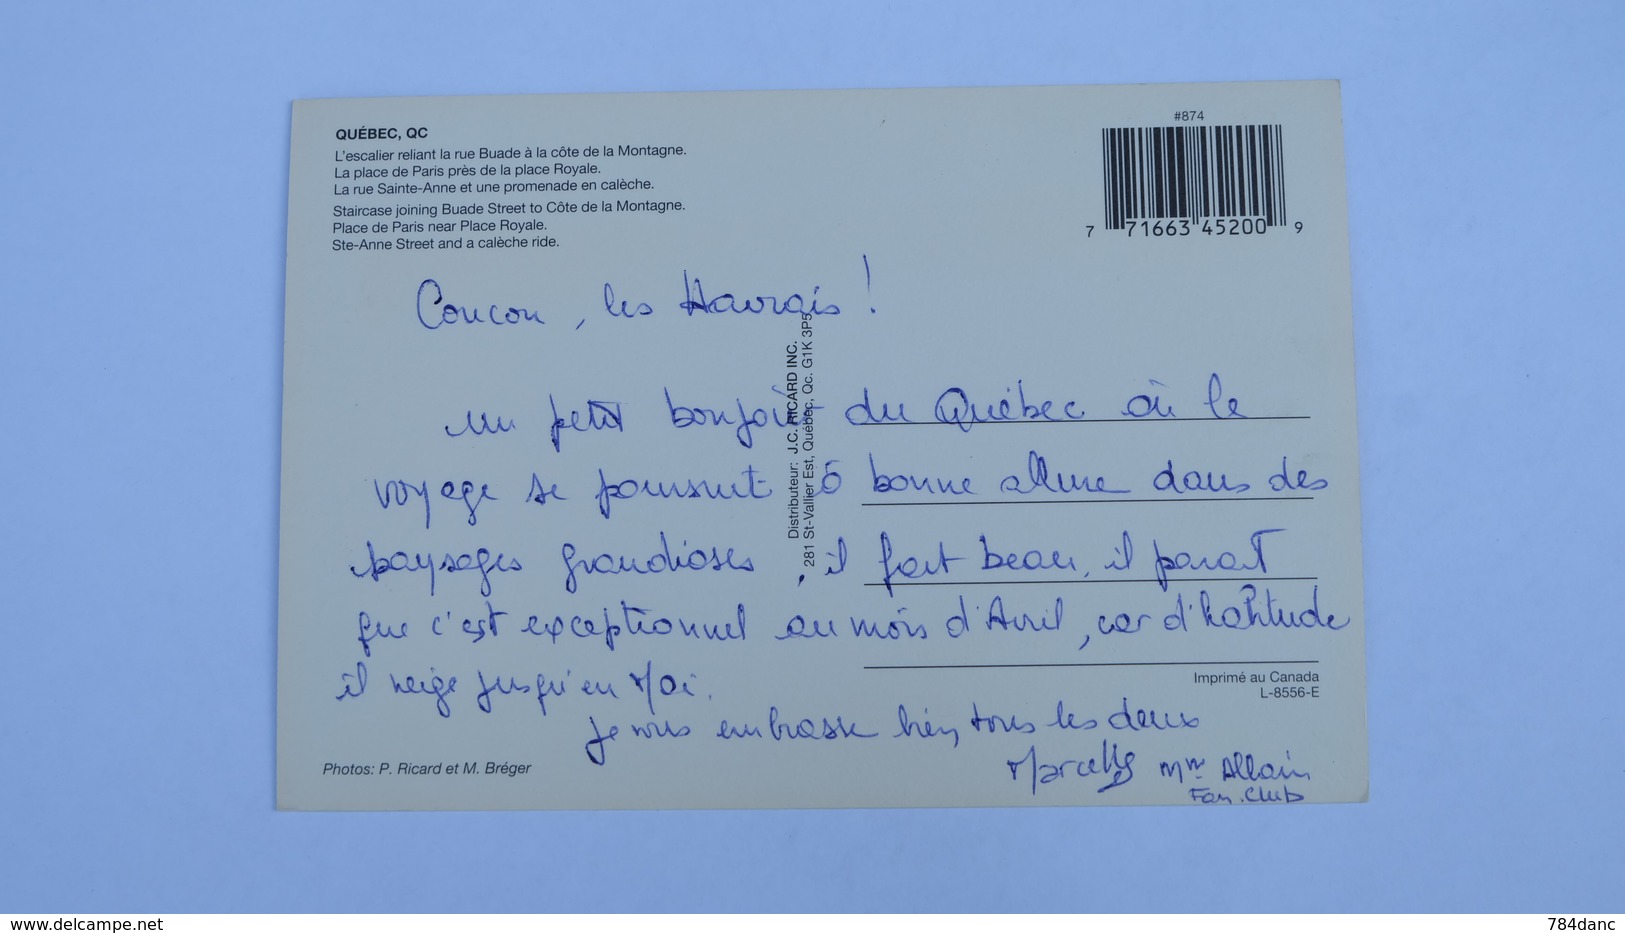 QUÉBEC, QC
L'escalier reliant la rue Buade à la côte de la Montagne.
La place de Paris près de la place Royale.
La rue Sainte-Anne et une promenade en calèche.
Staircase joining Buade Street to Côte de la Montagne.
Place de Paris near Place Royale.
Ste-Anne Street and a calèche ride.
#874
7 71663 45200 9
Coucou, les Havrais !
un petit bonjour du Québec où le
voyage se poursuit à bonne allure dans des
paysages grandioses, il fait beau, il parait
que c'est exceptionnel au mois d'Avril, car d'habitude
il neige jusqu'en Mai.
je vous embrasse bien, tous les deux
Marcelle Mme Allain
Fan.Club
Distributeur: J.C. RICARD INC.
281 St-Vallier Est, Québec, Qc. G1K 3P5
Imprimé au Canada
L-8556-E
Photos: P. Ricard et M. Bréger
www.delcampe.net
784danc